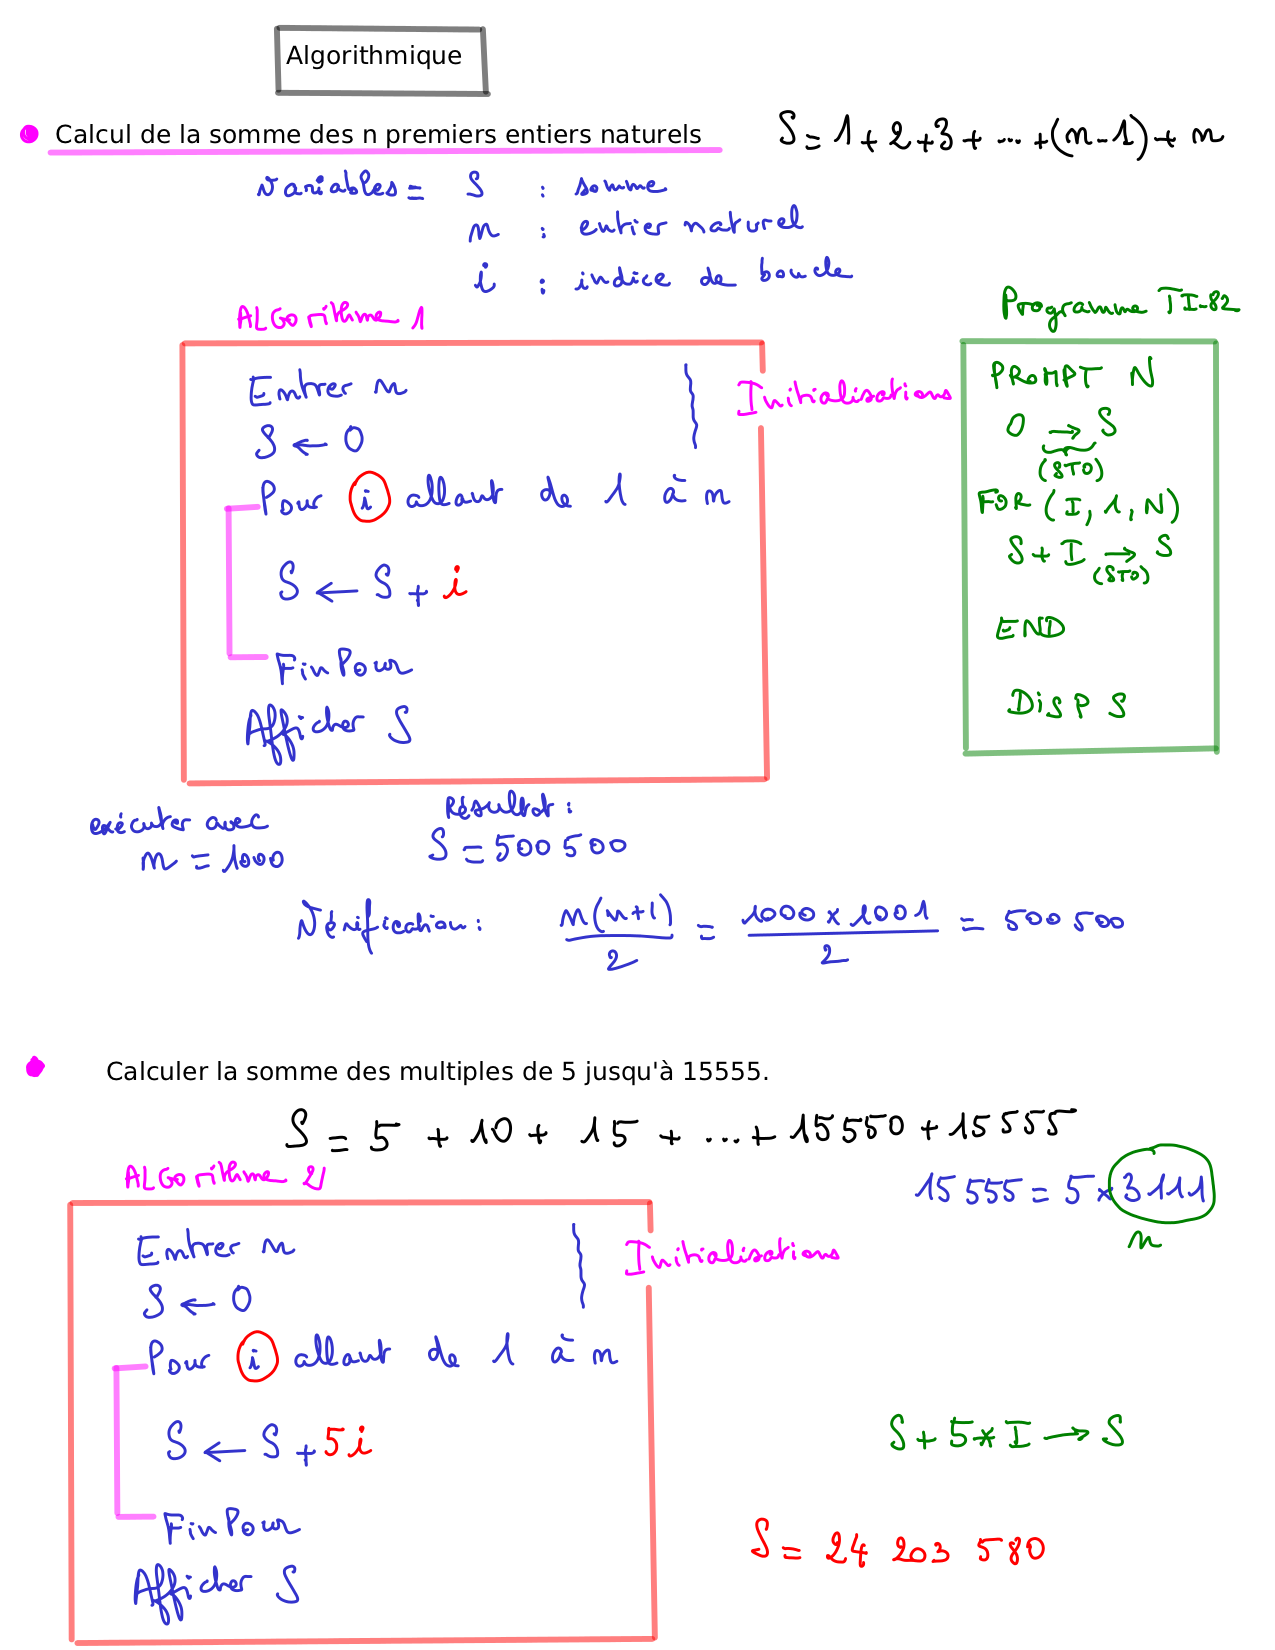 Algorithmique
Calcul de la somme des n premiers entiers naturels S = 1 + 2 + 3 + ... + (n-1) + n
Variables = S : somme
n : entier naturel
i : indice de boucle
ALGorithme 1
Entrer n
S ← 0
Initialisations
Pour i allant de 1 à n
S ← S + i
Fin Pour
Afficher S
Programme TI-82
PROMPT N
0 → S
(STO)
FOR (I, 1, N)
S + I → S
(STO)
END
DiSP S
exécuter avec
n = 1000
Résultat :
S = 500 500
Vérification : n(n+1)/2 = 1000 × 1001/2 = 500 500
Calculer la somme des multiples de 5 jusqu'à 15555.
S = 5 + 10 + 15 + ... + 15 550 + 15 555
15 555 = 5 × 3 111
n
ALGorithme 2
Entrer n
S ← 0
Initialisations
Pour i allant de 1 à n
S ← S + 5i
Fin Pour
Afficher S
S + 5 * I → S
S = 24 203 580